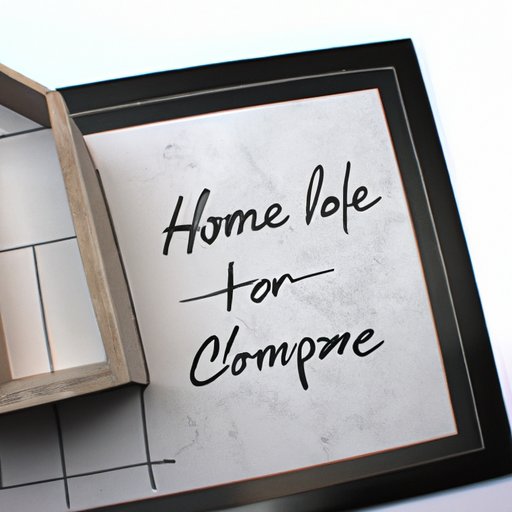 Home lole
for
Compne